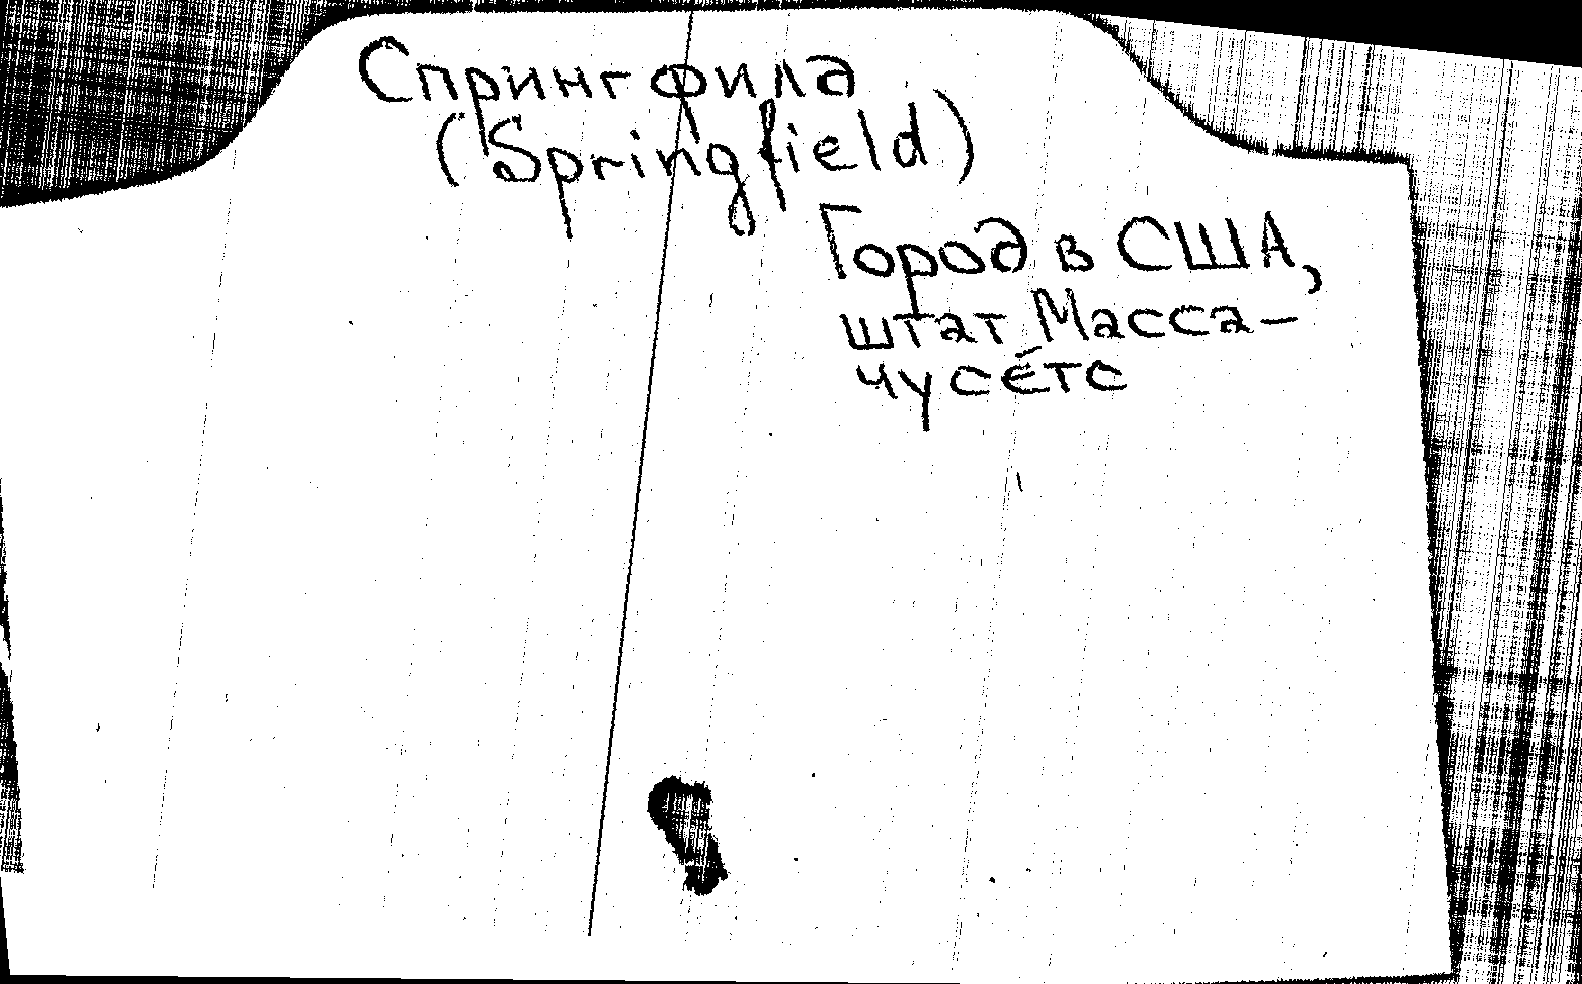 Спрингфилд
(Springfield)
Город в США,
штат Масса-
чусéтс